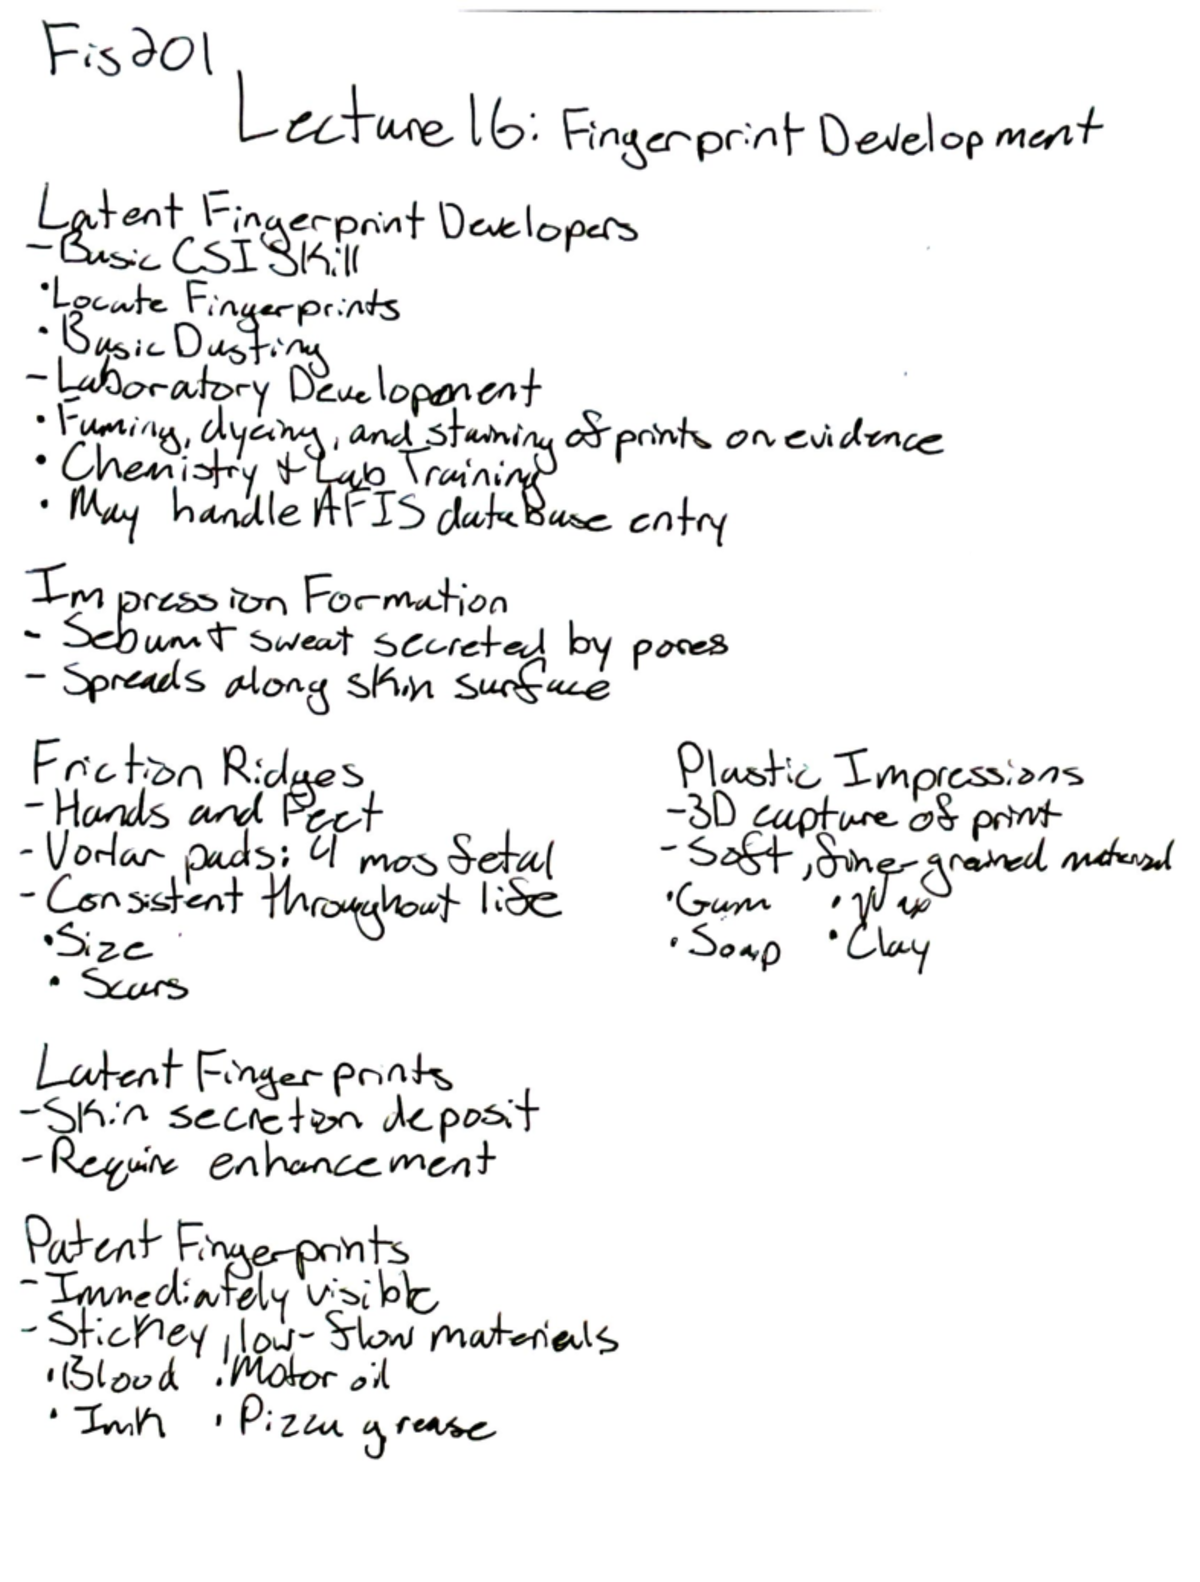 Fis201
Lecture 16: Fingerprint Development
Latent Fingerprint Developers
- Basic CSI Skill
• Locate Fingerprints
• Basic Dusting
- Laboratory Development
• Fuming, dyeing, and staining of prints on evidence
• Chemistry & Lab Training
• May handle AFIS dataBase entry
Impression Formation
- Sebum & sweat secreted by pores
- Spreads along skin surface
Friction Ridges
- Hands and Feet
- Vorlar pads: 4 mos fetal
- Consistent throughout life
• Size
• Scars
Plastic Impressions
- 3D capture of print
- Soft, fine-grained material
• Gum • Wax
• Soap • Clay
Latent Fingerprints
- Skin secretion deposit
- Require enhancement
Patent Fingerprints
- Immediately visible
- Stickey, low-flow materials
• Blood • Motor oil
• Ink • Pizza grease